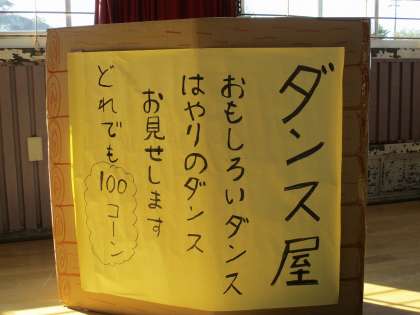 ダンス屋
おもしろいダンス
はやりのダンス
お見せします
どれでも100コーン